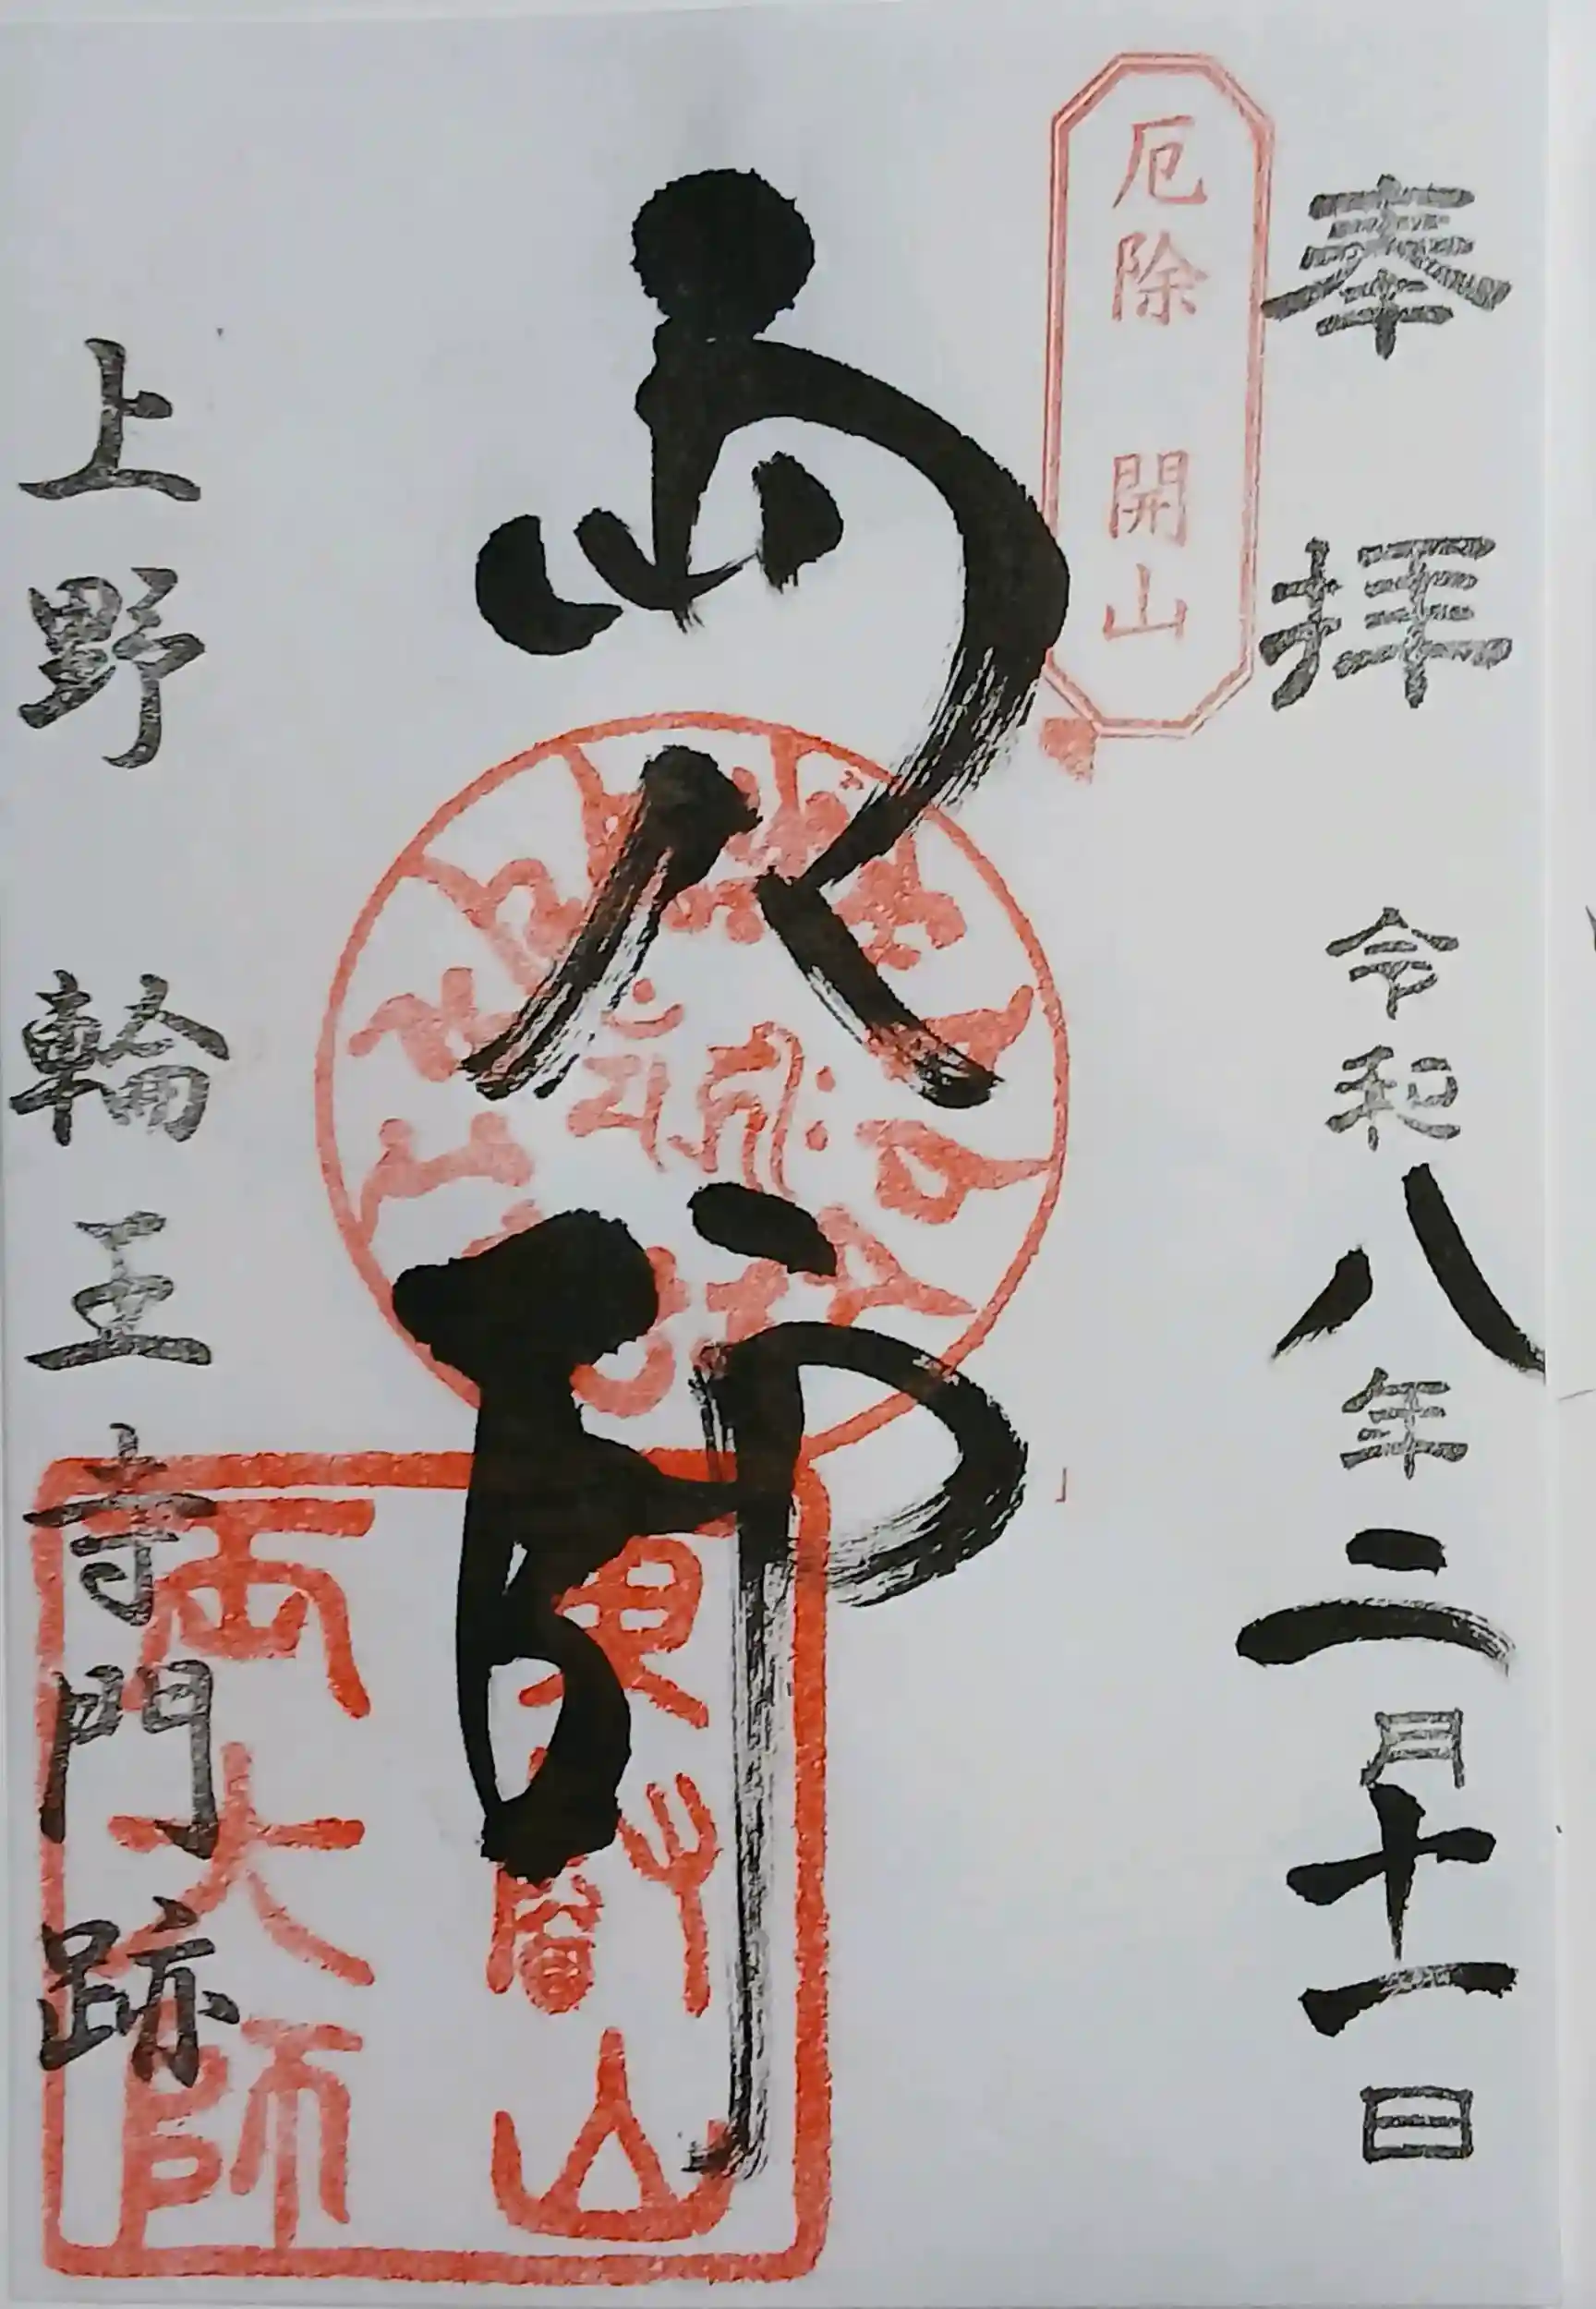 奉拝 令和八年二月十一日
厄除 開山
両大師
東叡山
両大師
上野 輪王寺門跡